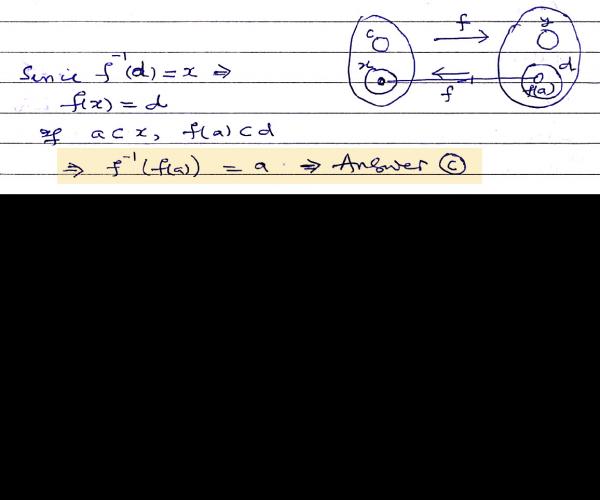 Since f⁻¹(d) = x ⇒
f(x) = d
If a ⊂ x, f(a) ⊂ d
⇒ f⁻¹(f(a)) = a ⇒ Answer (C)
c
x
f
f
y
d
f(a)